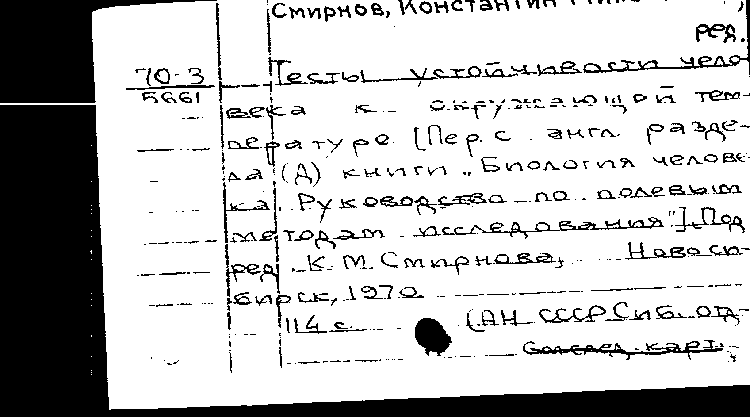 Смирнов, Константин
ред.
70-3 Тесты устойчивости чело-
5661 века к окружающей тем-
пературе. [Пер. с англ. разде-
ла (Д) книги „Биология челове-
ка. Руководство по полевым
методам исследования"]. Под
ред. К. М. Смирнова, Новоси-
бирск, 1970
114 с. (АН СССР Сиб. отд-